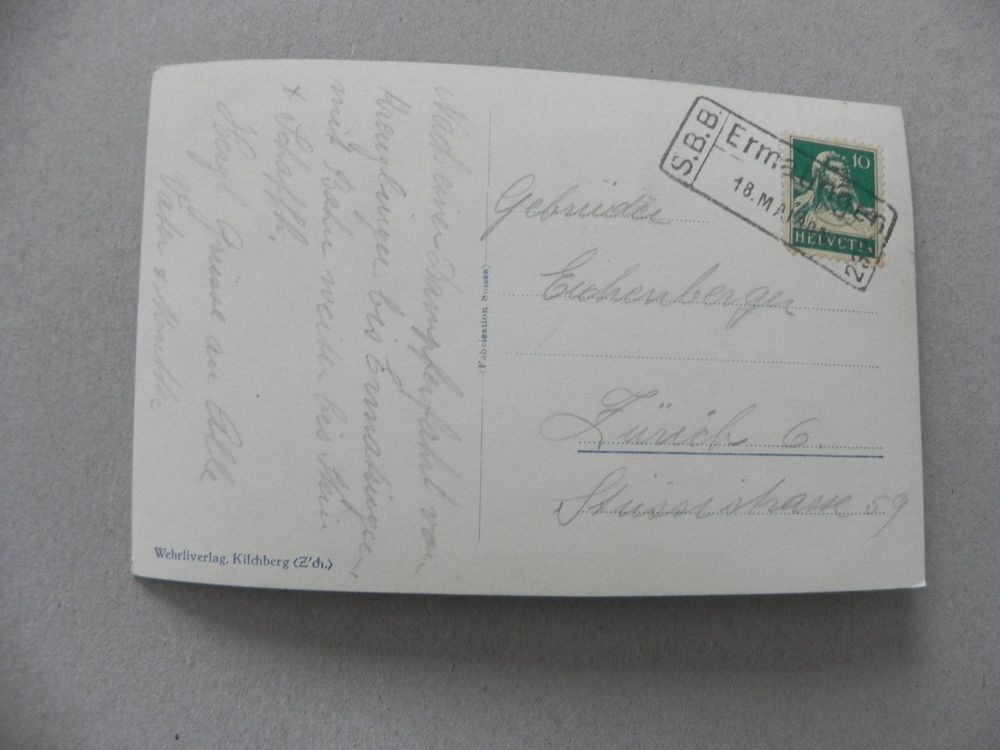 Nach einer Dampferfahrt von
Kreuzlingen bis Ermatingen,
mit Bahn weiter bis Stein
+ Schaffh.
Herzl. Grüsse an Alle
Vater &
(Fabrication Suisse)
Wehrliverlag, Kilchberg (Z'ch.)
S.B.B.
Ermatingen
18. MAI
23
10
HELVETIA
Gebrüder
Eichenberger
Zürich 6.
Stüssistrasse 59